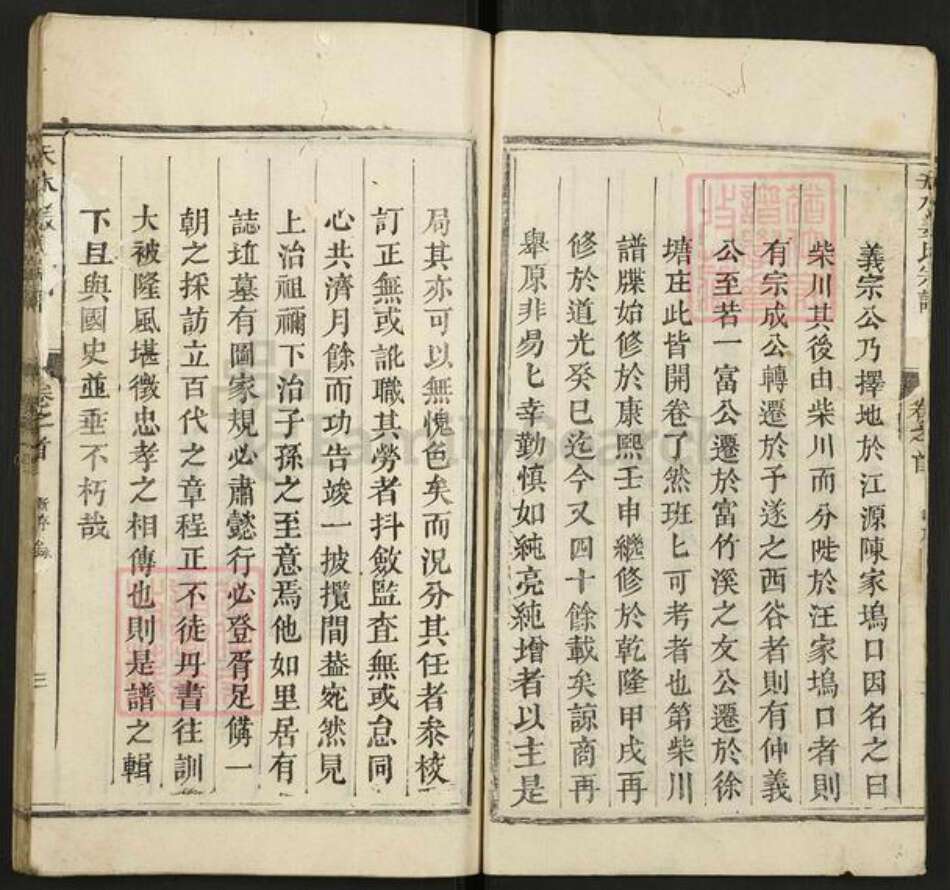 義宗公乃擇地於江源陳家塢口因名之曰
柴川其後由柴川而分陡於汪家塢口者則
有宗成公轉遷於子遂之西谷者則有仲義
公至若一富公遷於富竹溪之文公遷於徐
塘庄此皆開卷了然班匕可考者也第柴川
譜牒始修於康熙壬申繼修於乾隆甲戌再
修於道光癸巳迄今又四十餘載矣諒商再
舉原非易匕幸勤慎如純亮純增者以主是
卷之首
局其亦可以無愧色矣而況分其任者叅校
訂正無或訛職其勞者抖斂監查無或怠同
心共濟月餘而功告竣一披攬間葢宛然見
上治祖禰下治子孫之至意焉他如里居有
誌塋墓有圖家規必肅懿行必登胥足備一
朝之採訪立百代之章程正不徒丹書往訓
大被隆風堪徵忠孝之相傳也則是譜之輯
下且與國史並垂不朽哉
卷之首
三